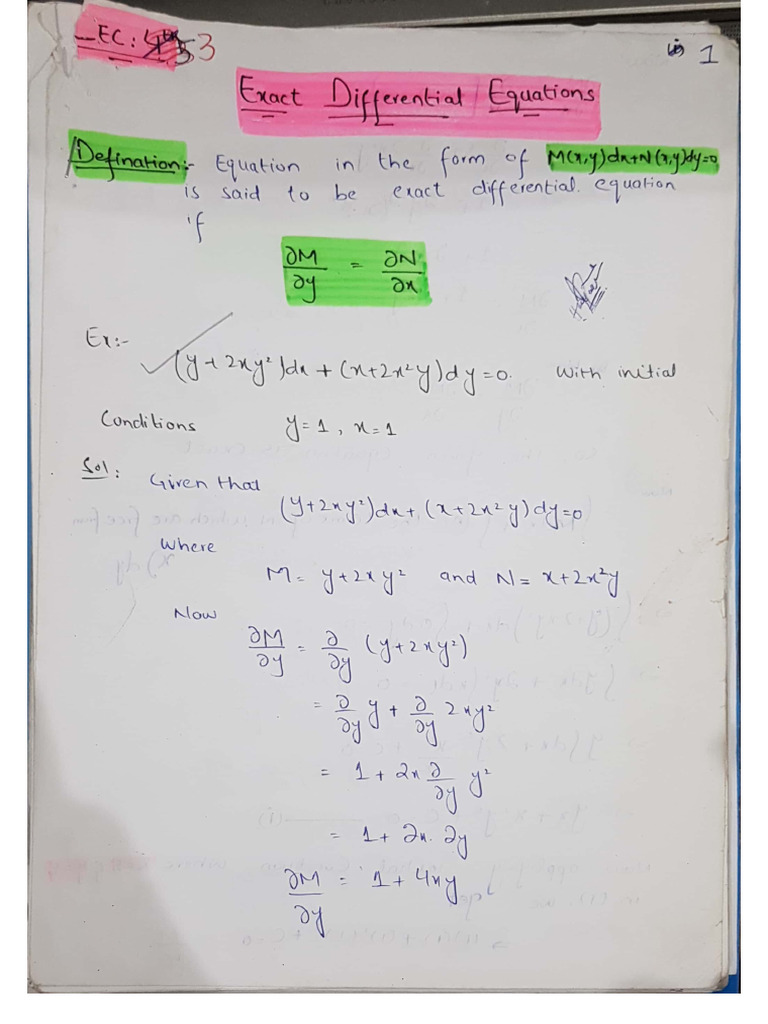 EC: 3
(i) 1
Exact Differential Equations
Defination:- Equation in the form of M(x,y)dx+N(x,y)dy=0
is said to be exact differential equation
if
∂M/∂y = ∂N/∂x
Ex:-
(y+2xy²)dx+(x+2x²y)dy=0. with initial
Conditions y=1, x=1
Sol: Given that
(y+2xy²)dx+(x+2x²y)dy=0
Where
M= y+2xy² and N= x+2x²y
Now
∂M/∂y = ∂/∂y (y+2xy²)
= ∂/∂y y + ∂/∂y 2xy²
= 1 + 2x ∂/∂y y²
= 1 + 2x. 2y
∂M/∂y = 1 + 4xy